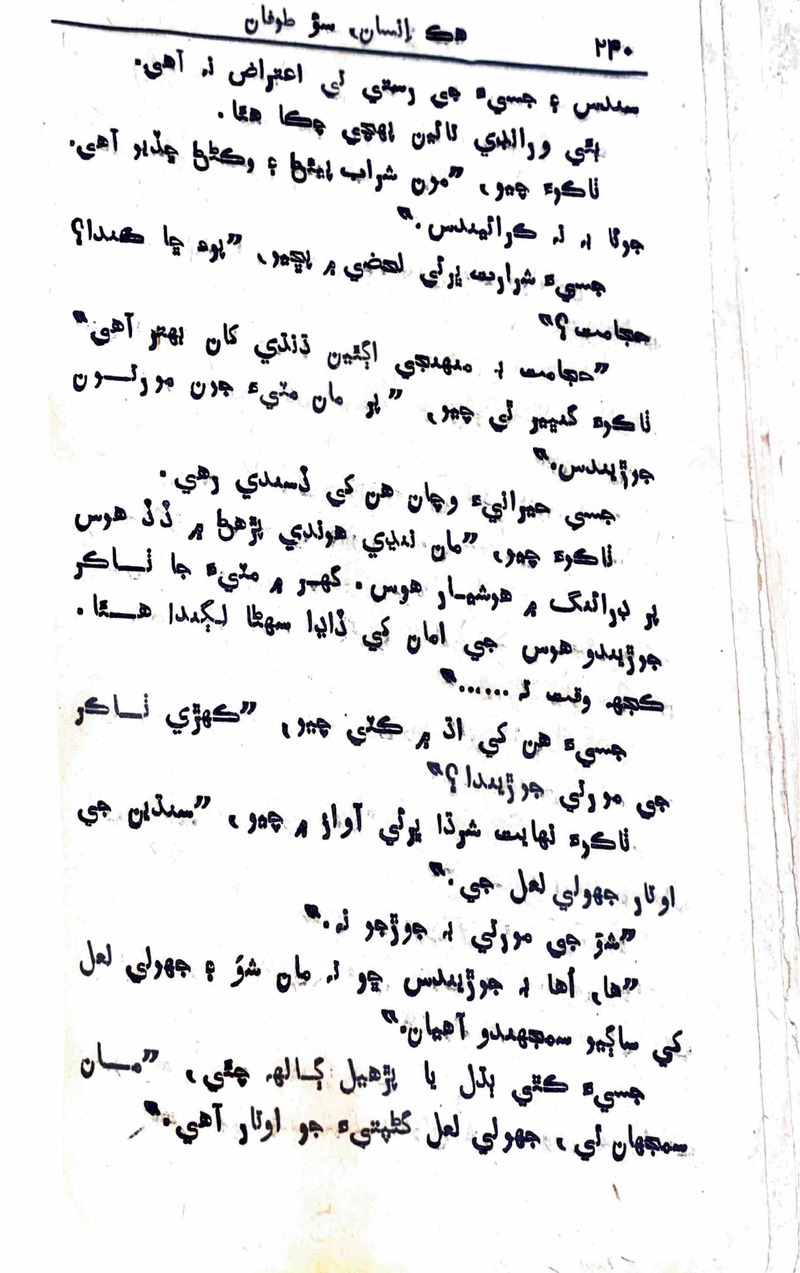 ۲۴۰
هڪ اِنسان، سؤ طوفان
سندس ۽ جسيءَ جي رستي تي اعتراض نہ آهي.
ٻئي ورانڊي تائين پهچي چڪا هئا.
ٺاڪرءَ چيو، ”مون شراب پيئڻ ۽ وڪڻڻ ڇڏيو آهي.
جوئا بہ نہ کرائيندس.“
جسيءَ شرارت ڀرئي لهجي ۾ پڇيو، ”پوءِ ڇا ڪندا؟
حجامت؟“
”حجامت بہ منهنجي اڳئين ڌنڌي کان بهتر آهي“
ٺاڪرءَ گنڀير ٿي چيو، ”پر مان مٽيءَ جون مورتــون
جوڙيندس.“
جسي حيرانيءَ وچان هن کي ڏسندي رهي.
ٺاڪرءَ چيو، ”مان ننڍي هوندي پڙهڻ ۾ ڏڏ هوس
پر ڊرائنگ ۾ هوشيـار هوس. گهـر ۾ مٽيءَ جا ٺـاڪر
جوڙيندو هوس جي امان کي ڏاڍا سهڻا لڳندا هــئا.
ڪجهہ وقت تہ ......“
جسيءَ هن کي اڌ ۾ ڪٽي چيو، ”ڪهڙي ٺـاڪر
جي مورتي جوڙيندا؟“
ٺاڪرءَ نهايت شرڌا ڀرئي آواز ۾ چيو، ”سنڌين جي
اوتار جهولي لعل جي.“
”شوَ جي مورتي بہ جوڙجو نہ.“
”ها، اُها بہ جوڙيندس ڇو تہ مان شوَ ۽ جهولي لعل
کي ساڳيو سمجهندو آهيان.“
جسيءَ ڪٿي ٻڌل يا پڙهيل ڳـالهہ چئي، ”مــان
سمجهان ٿي، جهولي لعل گڻپتيءَ جو اوتار آهي.“